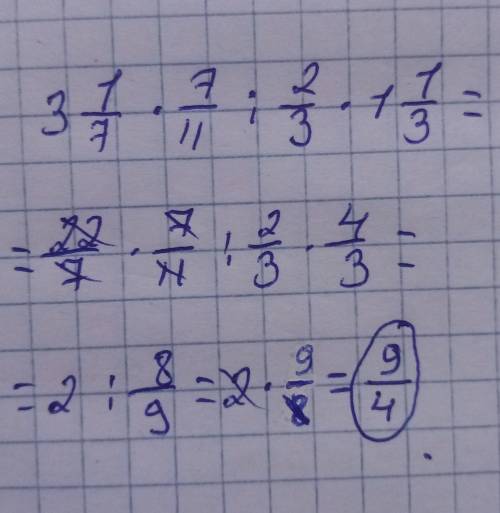 3 1/7 · 7/11 : 2/3 · 1 1/3 =
= 22/7 · 7/11 : 2/3 · 4/3 =
= 2 : 8/9 = 2 · 9/8 = 9/4